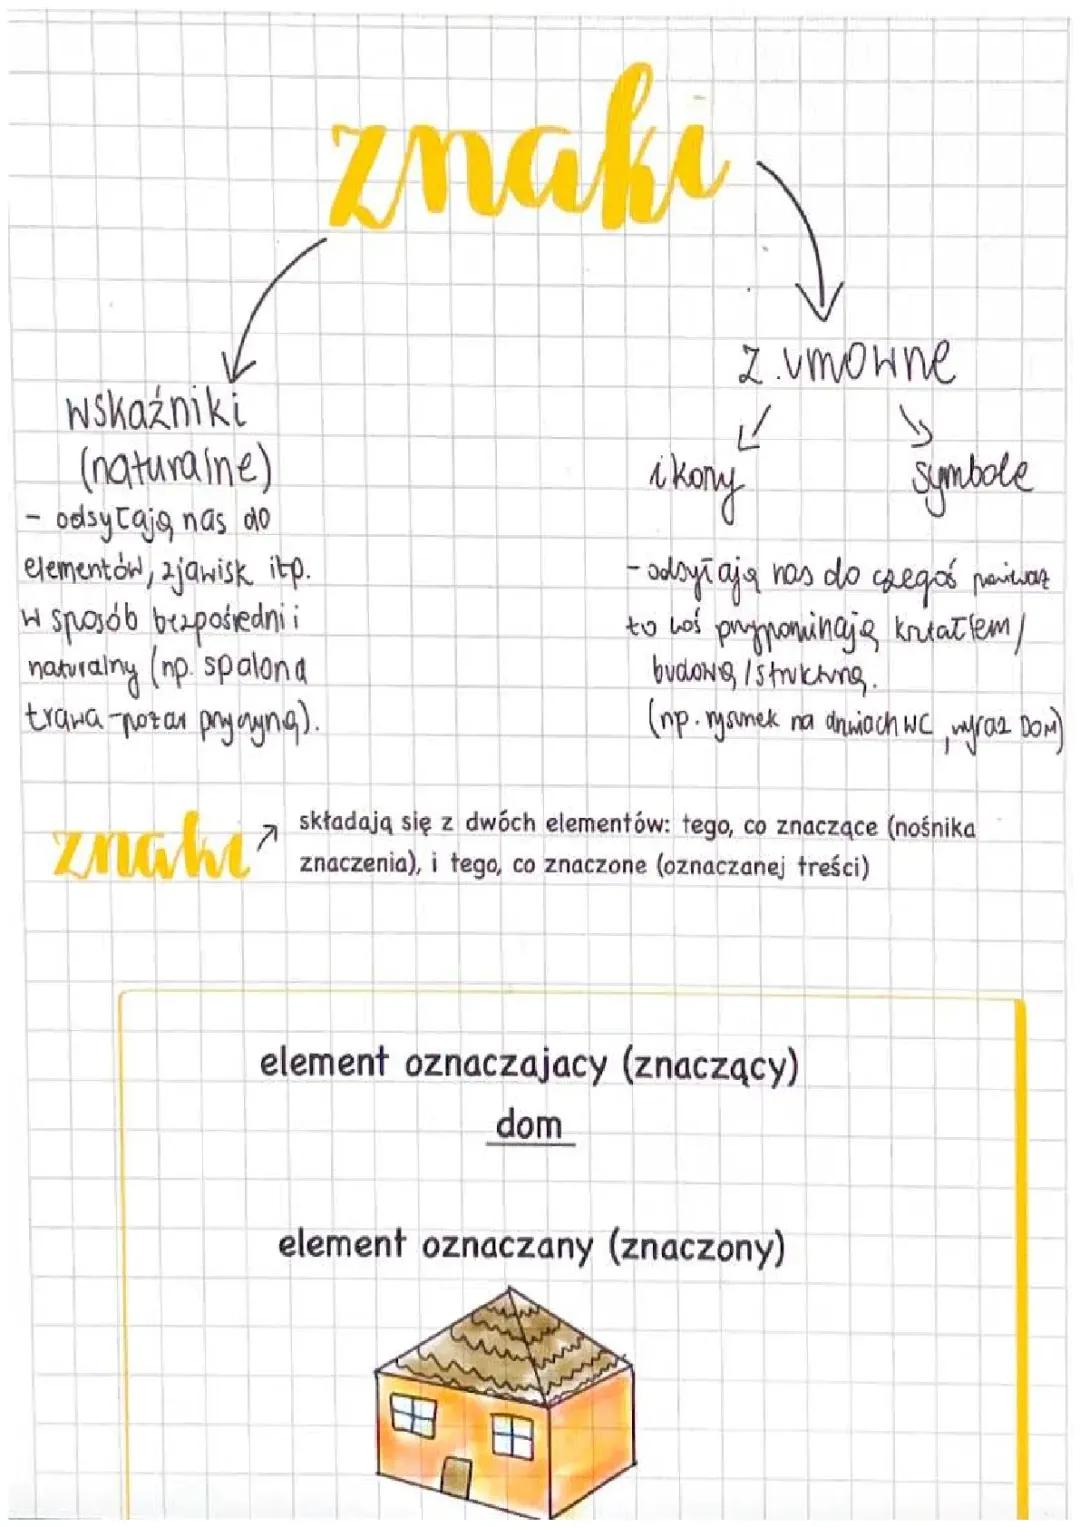 znaki
wskaźniki
(naturalne)
- odsyłają nas do
elementów, zjawisk itp.
w sposób bezpośredni i
naturalny (np. spalona
trawa - pożar przyczyną).
z. umowne
ikony symbole
- odsyłają nas do czegoś ponieważ
to coś przypominają kształtem /
budową / strukturą.
(np. rysunek na drzwiach WC, wyraz DOM)
znaki składają się z dwóch elementów: tego, co znaczące (nośnika
znaczenia), i tego, co znaczone (oznaczanej treści)
element oznaczajacy (znaczący)
dom
element oznaczany (znaczony)